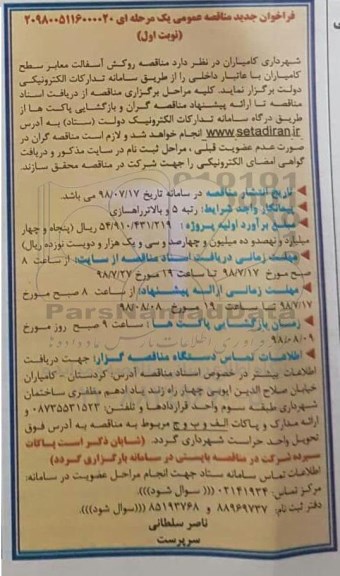 فراخوان جدید مناقصه عمومی یک مرحله ای ۲۰۹۸۰۰۵۱۱۶۰۰۰۰۲۰
(نوبت اول)
شهرداری کامیاران در نظر دارد مناقصه روکش آسفالت معابر سطح
کامیاران با عتبار داخلی را از طریق سامانه تدارکات الکترونیکی
دولت برگزار نماید. کلیه مراحل برگزاری مناقصه از دریافت اسناد
مناقصه تا ارائه پیشنهاد مناقصه گران و بازگشایی پاکت ها از
طریق درگاه سامانه تدارکات الکترونیک دولت (ستاد) به آدرس
www.setadiran.ir انجام خواهد شد و لازم است مناقصه گران در
صورت عدم عضویت قبلی، مراحل ثبت نام در سایت مذکور و دریافت
گواهی امضای الکترونیکی را جهت شرکت در مناقصه محقق سازند.
تاریخ انتشار مناقصه در سامانه تاریخ ۹۸/۰۷/۱۷ می باشد.
پیمانکار واجد شرایط: رتبه ۵ و بالاتر راهسازی
مبلغ برآورد اولیه پروژه: ۵۴/۹۱۰/۴۳۱/۲۱۹ ریال (پنجاه و چهار
میلیارد و نهصد و ده میلیون و چهارصد و سی و یک هزار و دویست نوزده ریال)
مهلت زمانی دریافت اسناد مناقصه از سایت: از ساعت ۸
صبح مورخ ۹۸/۷/۱۷ تا ساعت ۱۹ مورخ ۹۸/۷/۲۷
مهلت زمانی ارائه پیشنهاد: از ساعت ۸ صبح مورخ
۹۸/۷/۱۷ تا ساعت ۱۹ مورخ ۹۸/۰۸/۰۸
زمان بازگشایی پاکت ها: ساعت ۹ صبح روز مورخ
۹۸/۰۸/۰۹
اطلاعات تماس دستگاه مناقصه گزار: جهت دریافت
اطلاعات بیشتر در خصوص اسناد مناقصه آدرس: کردستان - کامیاران
خیابان صلاح الدین ایوبی چهار راه زنده یاد ادهم مظفری ساختمان
شهرداری طبقه سوم واحد قراردادها و تلفن: ۰۸۷۳۵۵۳۱۵۲۳ و
ارائه مدارک و پاکات الف و ب و ج مربوط به مناقصه به آدرس فوق
تحویل واحد حراست شهرداری گردد. (شایان ذکر است پاکات
سپرده شرکت در مناقصه بایستی در سامانه بارگزاری گردد)
اطلاعات تماس سامانه ستاد جهت انجام مراحل عضویت در سامانه:
مرکز تماس: ۰۲۱۴۱۹۳۴ (((سوال شود))).
دفتر ثبت نام: ۸۸۹۶۹۷۳۷ و ۸۵۱۹۳۷۶۸ (((سوال شود))).
ناصر سلطانی
سرپرست